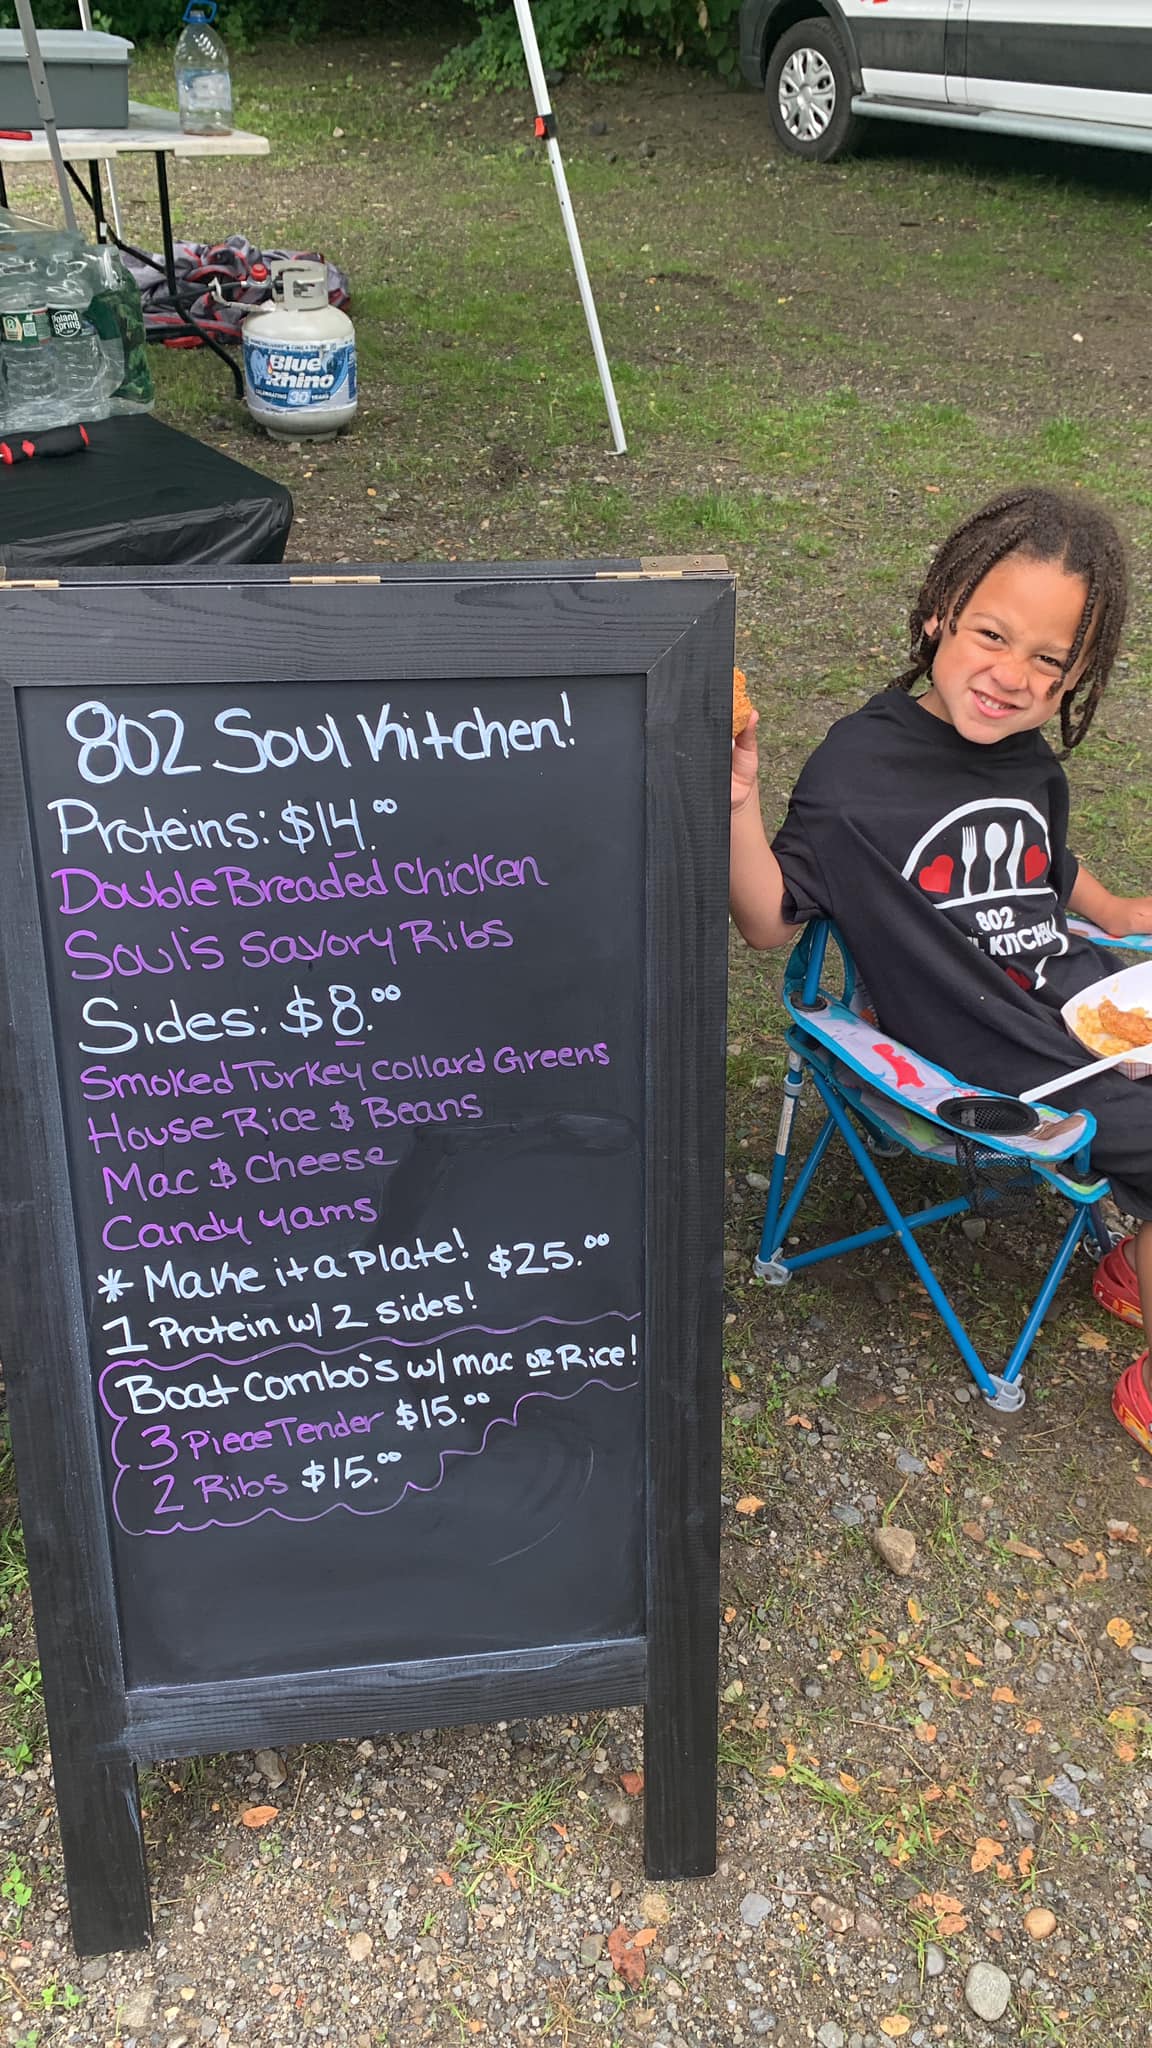 Poland
Spring
Blue
Rhino
CELEBRATING 30 YEARS
802 Soul Kitchen!
Proteins: $14.00
Double Breaded Chicken
Soul's Savory Ribs
Sides: $8.00
Smoked Turkey collard Greens
House Rice & Beans
Mac & Cheese
Candy yams
* Make it a Plate! $25.00
1 Protein w/ 2 sides!
Boat Combo's w/ mac OR Rice!
3 Piece Tender $15.00
2 Ribs $15.00
802
KITCHEN